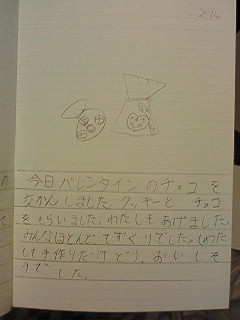 2.14
今日バレンタインのチョコを
なかんしました。クッキーと チョコ
をもらいました。わたしもあげました。
みんなほとんど、てずくりでした。(わた
しも手作りだけどう)。おいしそ
うでした。